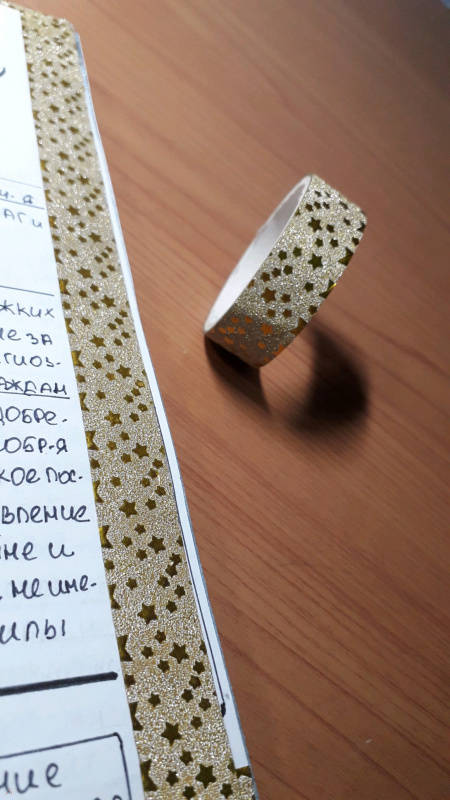 АГИ
ЖКИХ
ИЕ ЗА
ГИОЗ-
РАЖДАН
ДОБРЕ-
ОБР-Я
КОЕ ПОС-
ВЛЕНИЕ
НЕ И
НЕ ИМЕ-
ИЛЫ
НИЕ